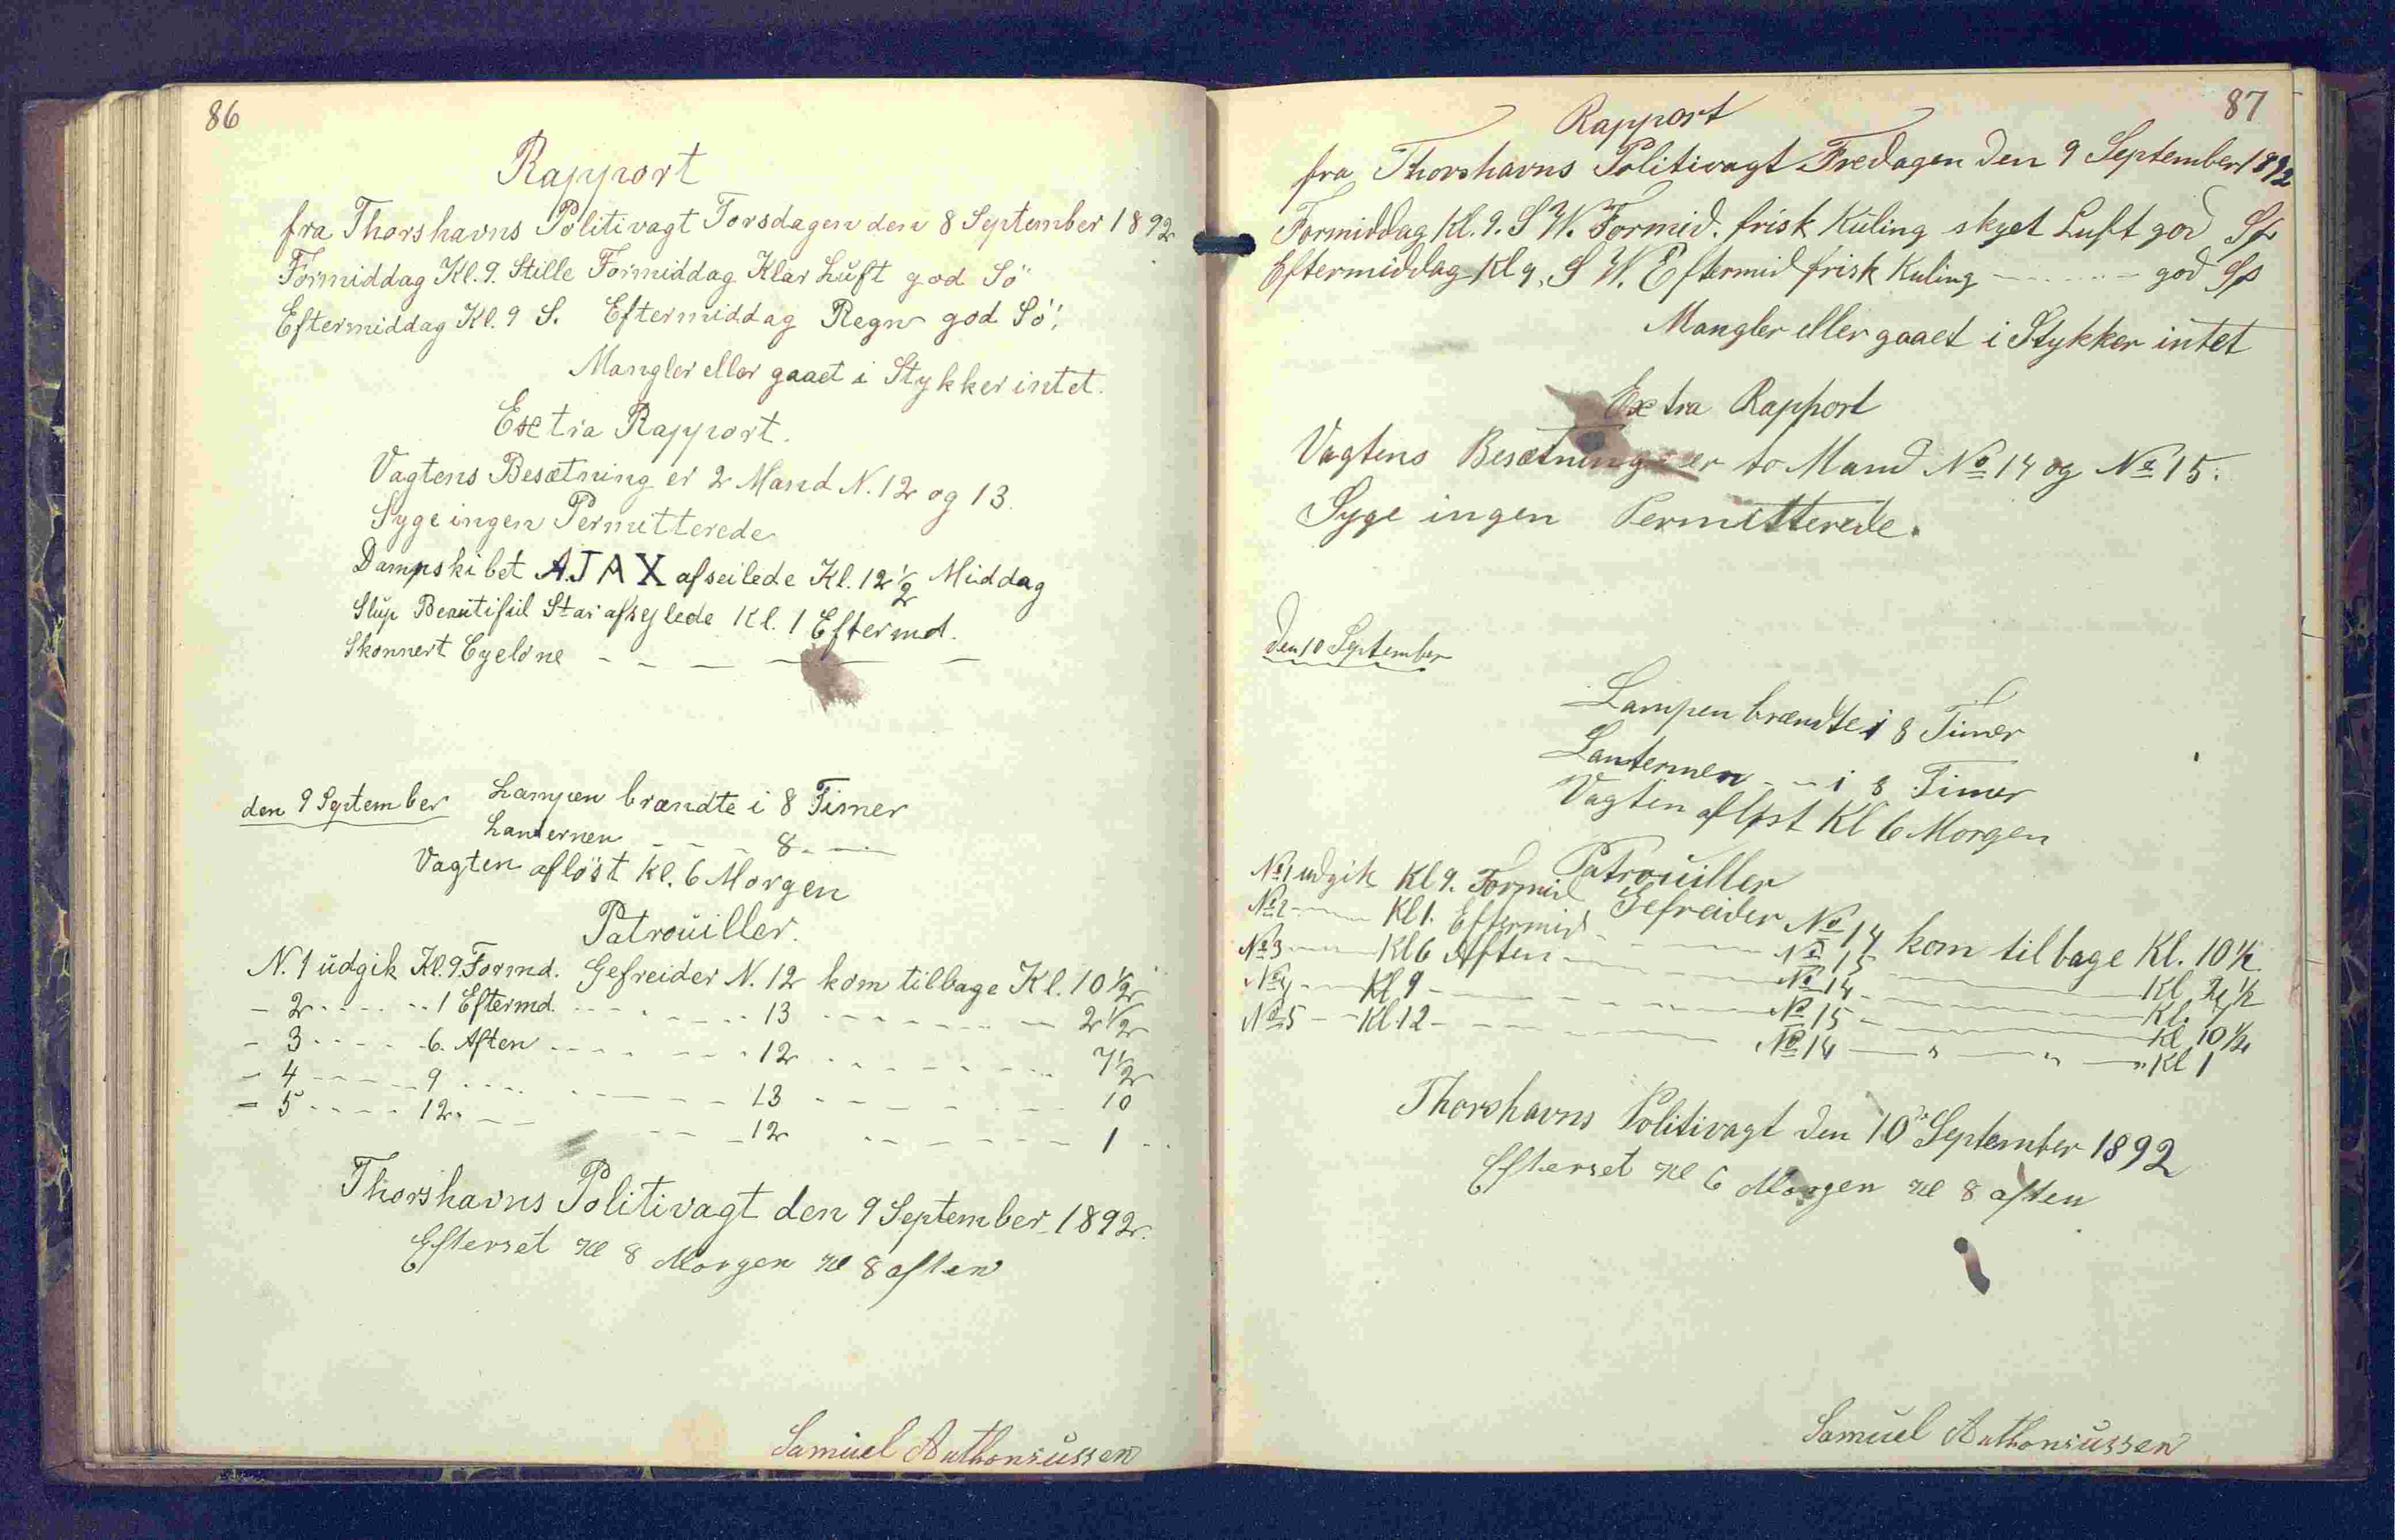 86
Rapport
fra Thorshavns Politivagt Torsdagen den 8 September 1892
Formiddag Kl. 9. Stille Formiddag Klar Luft god Sö
Eftermiddag Kl. 9 S. Eftermiddag Regn god Sö.
Mangler eller gaaet i Stykker intet.
Extra Rapport.
Vagtens Besætning er 2 Mand N. 12 og 13.
Syge ingen Permitterede
Dampskibet AJAX afseilede Kl. 12 1/2 Middag
Slup Beautiful Star afsejlede Kl. 1 Eftermd.
Skonnert Cyclone - - - - - -
den 9 September Lampen brændte i 8 Timer
Lanternen - - - 8 - -
Vagten aflöst Kl. 6 Morgen
Patrouiller.
N. 1 udgik Kl. 9. Formd. Gefreider N. 12 kom tilbage Kl. 10 1/2
- 2 - - - - 1 Eftermd. - - - - 13 - - - - 2 1/2
- 3 - - - - 6. Aften - - - - 12 - - - - 7 1/2
- 4 - - - - 9 - - - - 13 - - - - 10
- 5 - - - - 12. - - - - 12 - - - - 1 - -
Thorshavns Politivagt den 9 September 1892.
Efterset Kl 8 Morgen Kl 8 aften
Samuel Anthoniussen
87
Rapport
fra Thorshavns Politivagt Fredagen den 9 September 1892
Formiddag Kl. 9. S W. Formid. frisk Kuling skyet Luft god Sø
Eftermiddag Kl 9, S W. Eftermid frisk Kuling - - - - god Sø
Mangler eller gaaet i Stykker intet
Extra Rapport
Vagtens Besætning er to Mand No 14 og No 15.
Syge ingen Permitterede.
Den 10 September
Lampen brændte i 8 Timer
Lanternen - - i 8 Timer
Vagten afløst Kl 6 Morgen
Patrouiller
No 1 udgik Kl 9. Formid Gefreider No 14 kom tilbage Kl. 10 1/2
No 2 - - Kl 1. Eftermid - - - No 15 - - - Kl 2 1/2
No 3 - - Kl 6 Aften - - - No 14 - - - Kl. 7
No 4 - - Kl 9 - - - No 15 - - - Kl 10 1/2
No 5 - - Kl. 12 - - - No 14 — " — " — " Kl 1
Thorshavns Politivagt den 10 September 1892
Efterset Kl 6 Morgen Kl 8 aften
Samuel Anthoniussen